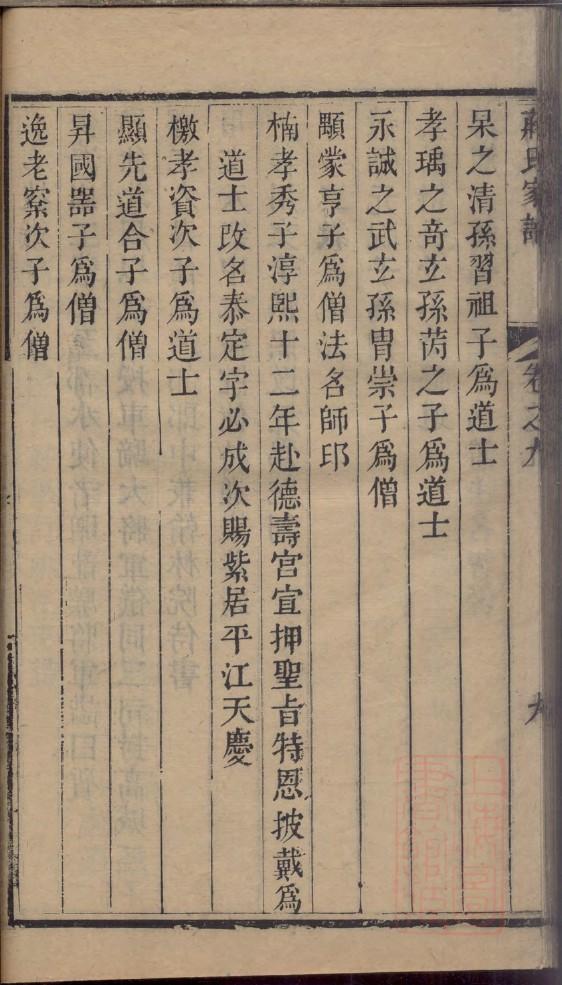 家譜 卷之九 九
杲之清孫習祖子爲道士
孝瑀之竒玄孫芮之子爲道士
永誠之武玄孫胄崇子爲僧
顒蒙亨子爲僧法名師邛
楠孝秀子淳熙十二年赴德壽宮宣押聖旨特恩披戴爲
道士改名泰定字必成次賜紫居平江天慶
檄孝資次子爲道士
顯先道合子爲僧
昇國器子爲僧
逸老寀次子爲僧